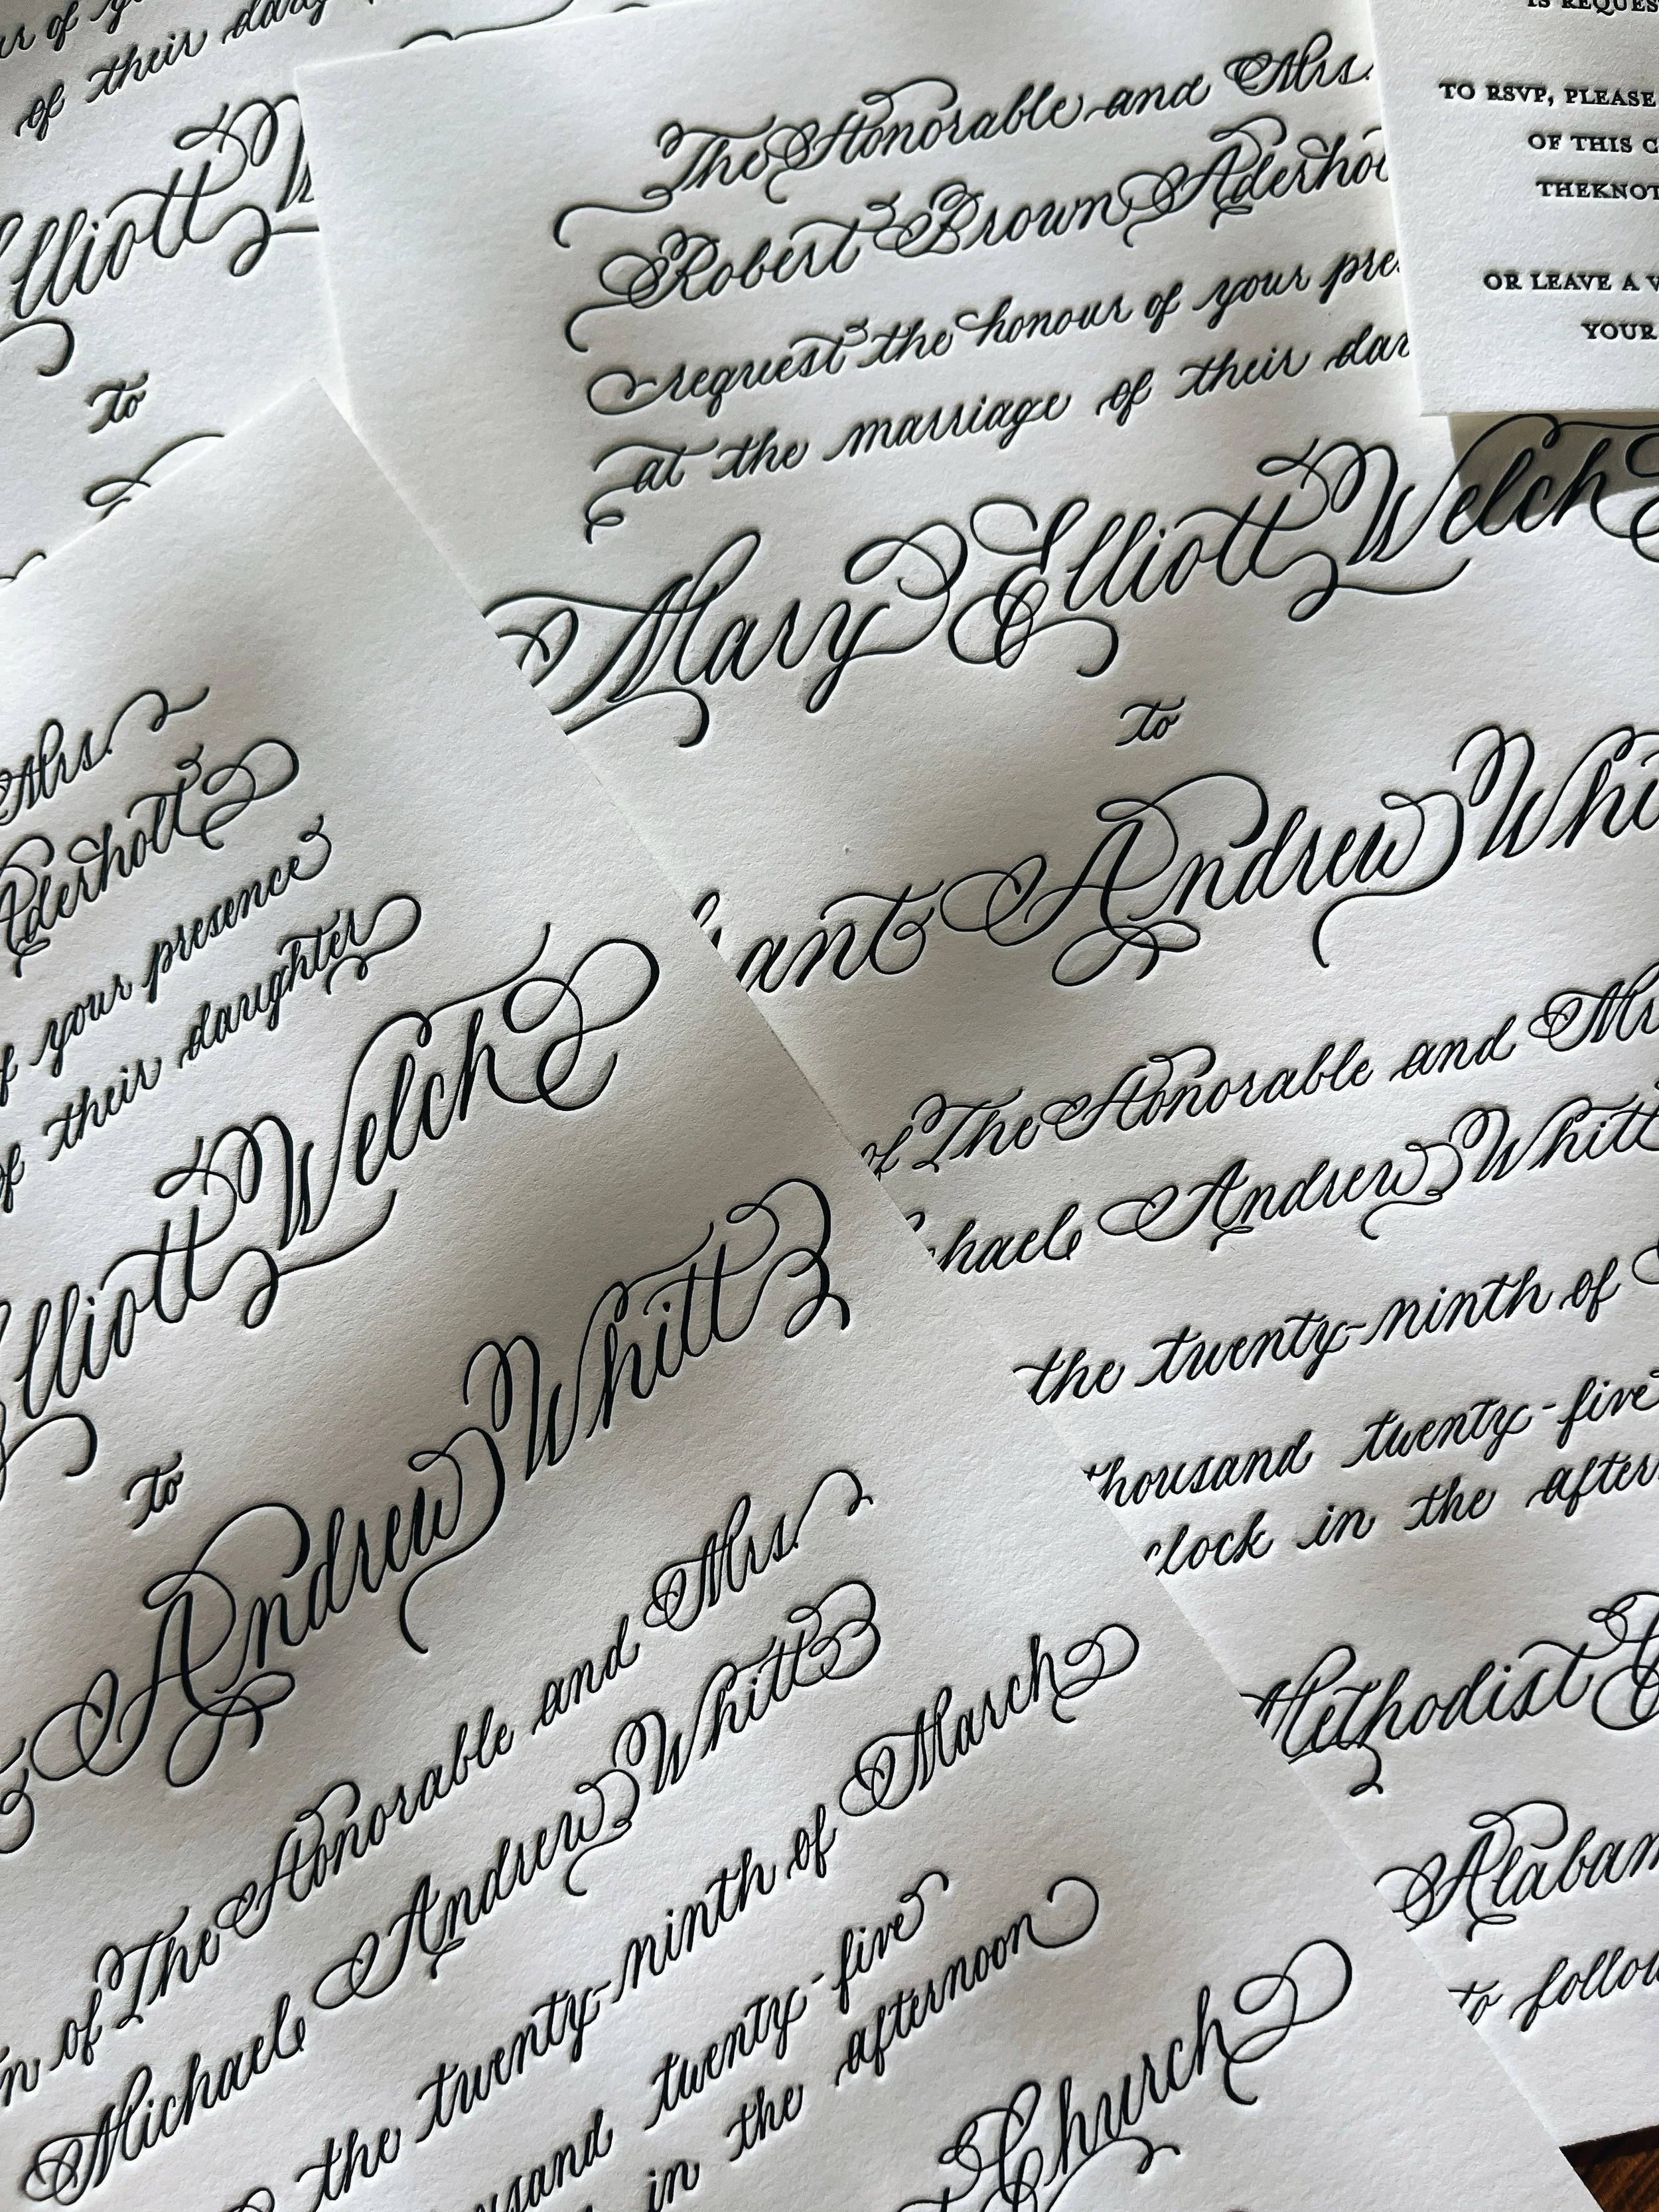 of their
Elliott
to
The Honorable and Mrs.
Robert Brown Aderholt
request the honour of your
at the marriage of their
Mary Elliott Welch
to
Andrew
of The Honorable and
Andrew Whitt
the twenty-ninth of
twenty-five
in the
Methodist
to
IS
TO RSVP, PLEASE
OF THIS
OR LEAVE A
YOUR
Mrs.
Aderholt
of your presence
of their daughter
Elliott Welch
to
Andrew Whitt
of The Honorable and Mrs.
Michael Andrew Whitt
the twenty-ninth of March
twenty-five
in the afternoon
Church